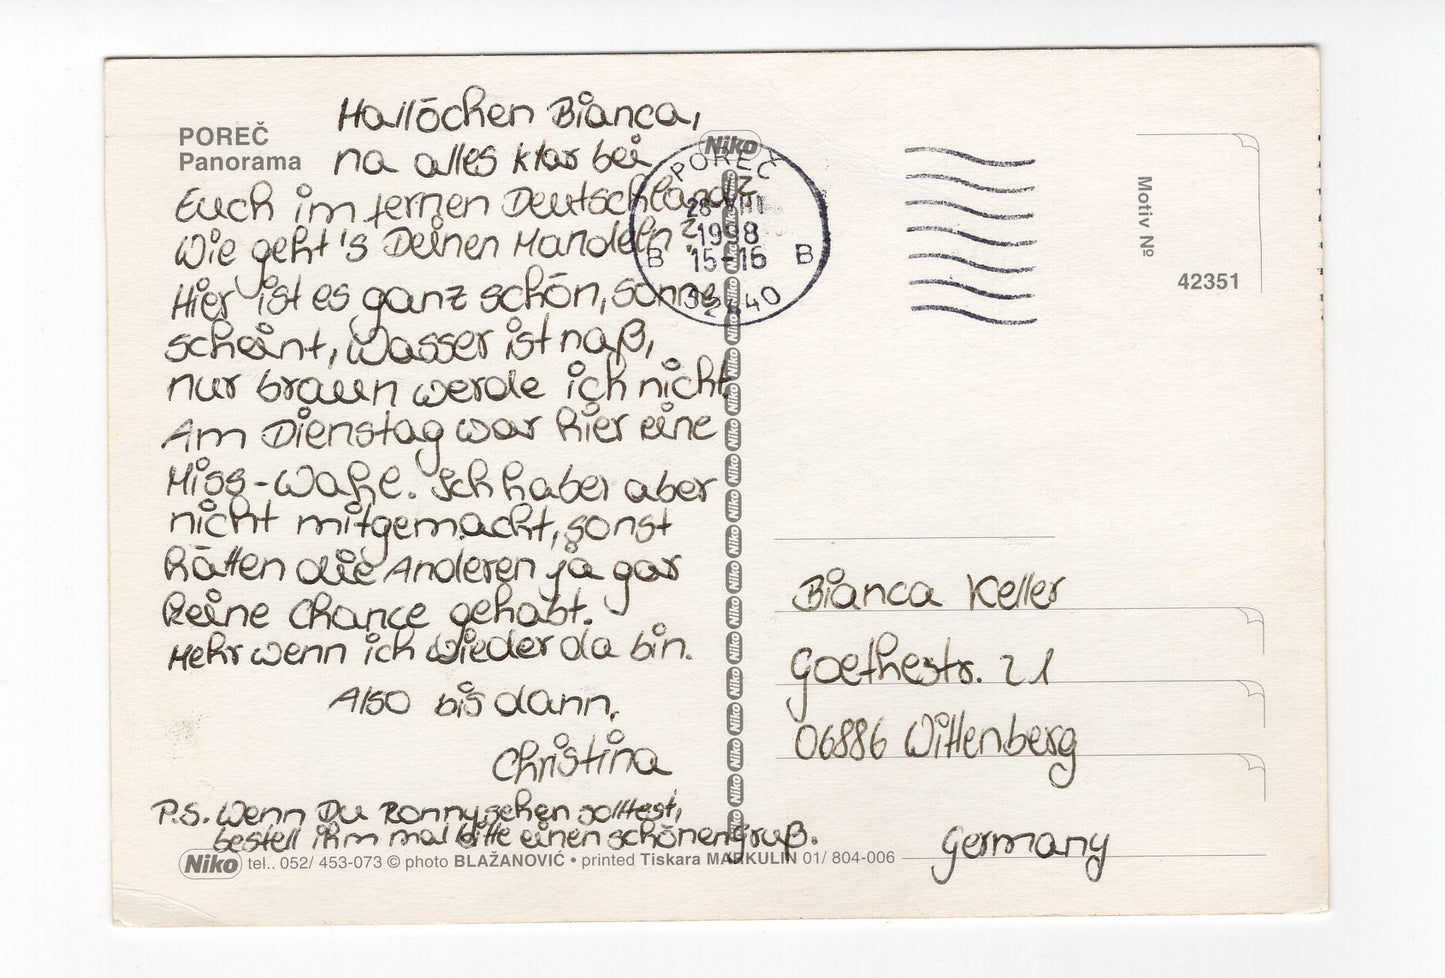 POREČ
Panorama
Hallöchen Bianca,
na alles klar bei
Euch im fernen Deutschland?
Wie geht's Deinen Mandeln?
Hier ist es ganz schön, Sonne
scheint, Wasser ist naß,
nur braun werde ich nicht.
Am Dienstag war hier eine
Miss-Wahl. Ich habe aber
nicht mitgemacht, sonst
hätten die Anderen ja gar
keine Chance gehabt.
Mehr wenn ich wieder da bin.
Also bis dann,
Christina
P.S. Wenn Du Ronny sehen solltest,
bestell ihm mal bitte einen schönen Gruß.
Niko tel.. 052/ 453-073 © photo BLAŽANOVIĆ • printed Tiskara MARKULIN 01/ 804-006
Niko
Niko
Niko
Niko
Niko
Niko
Niko
Niko
Niko
Niko
Niko
Niko
Niko
Niko
POREČ
1998
B 15-16 B
Motiv Nº
42351
Bianca Keller
Goethestr. 21
06886 Wittenberg
Germany